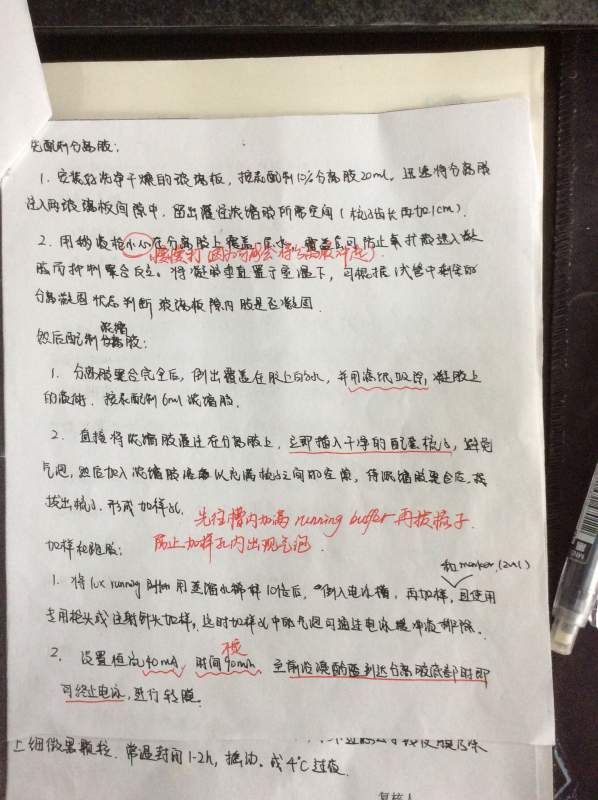 先配制分离胶：
1. 安装好洗净干燥的玻璃板，按表配制12%分离胶20ml，迅速将分离胶
注入两玻璃板间隙中，留出灌注浓缩胶所需空间（梳子齿长再加1cm）.
2. 用移液枪小心在分离胶上覆盖一层水，覆盖层可防止氧扩散进入凝
慢慢打（因为可能会将分离胶冲起）.
胶而抑制聚合反应。将凝胶垂直置于室温下，可根据试管中剩余的
分离凝固状态判断玻璃板隙内胶是否凝固.
然后配制浓缩胶：
1. 分离胶聚合完全后，倒出覆盖在胶上的水，并用滤纸吸除，凝胶上
的液体. 按表配制6ml浓缩胶.
2. 直接将浓缩胶灌注在分离胶上，立即插入干净的配套梳子，避免
气泡，然后加入浓缩胶溶液以充满梳子之间的空隙，待浓缩胶聚合后
拔出梳子，形成加样孔.
先往槽内加高running buffer再拔梳子.
防止加样孔内出现气泡.
加样和跑胶：
和marker
1. 将10x running Buffer用蒸馏水稀释10倍后，倒入电泳槽，再加样，且使用
专用枪头或注射针头加样，这时加样孔中的气泡可通过电泳缓冲液排除.
2. 设置恒流40mA，时间90min. 至前沿溴酚蓝到达分离胶底部时即
可终止电泳，进行转膜.
上细微黑颗粒. 常温封闭1-2h，摇动. 或4℃过夜.
复核人